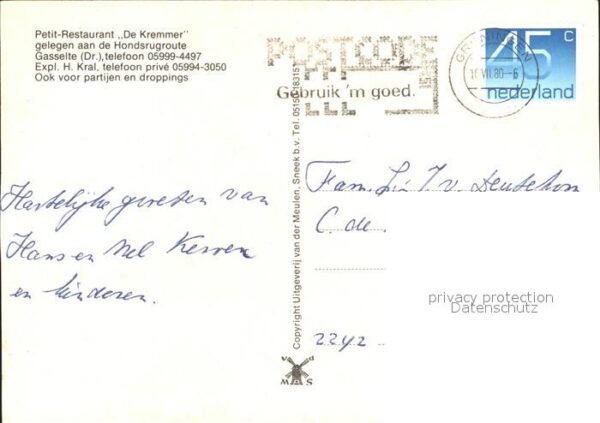 Petit-Restaurant „De Kremmer”
gelegen aan de Hondsrugroute
Gasselte (Dr.), telefoon 05999-4497
Expl. H. Kral, telefoon privé 05994-3050
Ook voor partijen en droppings
POSTCODE
Gebruik 'm goed.
GRONINGEN
VII.80
45 C
nederland
Hartelijke groeten van
Hans en Nel
en kinderen.
Copyright Uitgeverij van der Meulen, Sneek b.v. Tel.
Fam.
C. de.
2242
privacy protection
Datenschutz